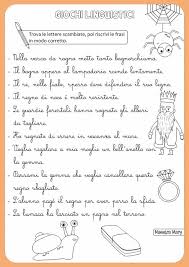 GIOCHI LINGUISTICI
Trova le lettere scambiate, poi riscrivi le frasi
in modo corretto.
- Nella vasca da ragno metto tanto bagnoschiuma.
- Il bagno appeso al lampadario scende lentamente.
- Il re, nelle fiabe, spera deve difendere il suo
- Il regno di noce è molto resistente.
- Le guardie forestali hanno sognato gli alberi
da tagliare.
- Ho segnato di essere in vacanza al mare.
- Voglio regalare a mia moglie un bell' anello con
la gomma.
- Passami la gemma che voglio cancellare questo
segno sbagliato.
- L'alunno pagò il segno per aver perso la sfida.
- La lumaca ha lasciato un pegno sul terreno.
Maestra Mary